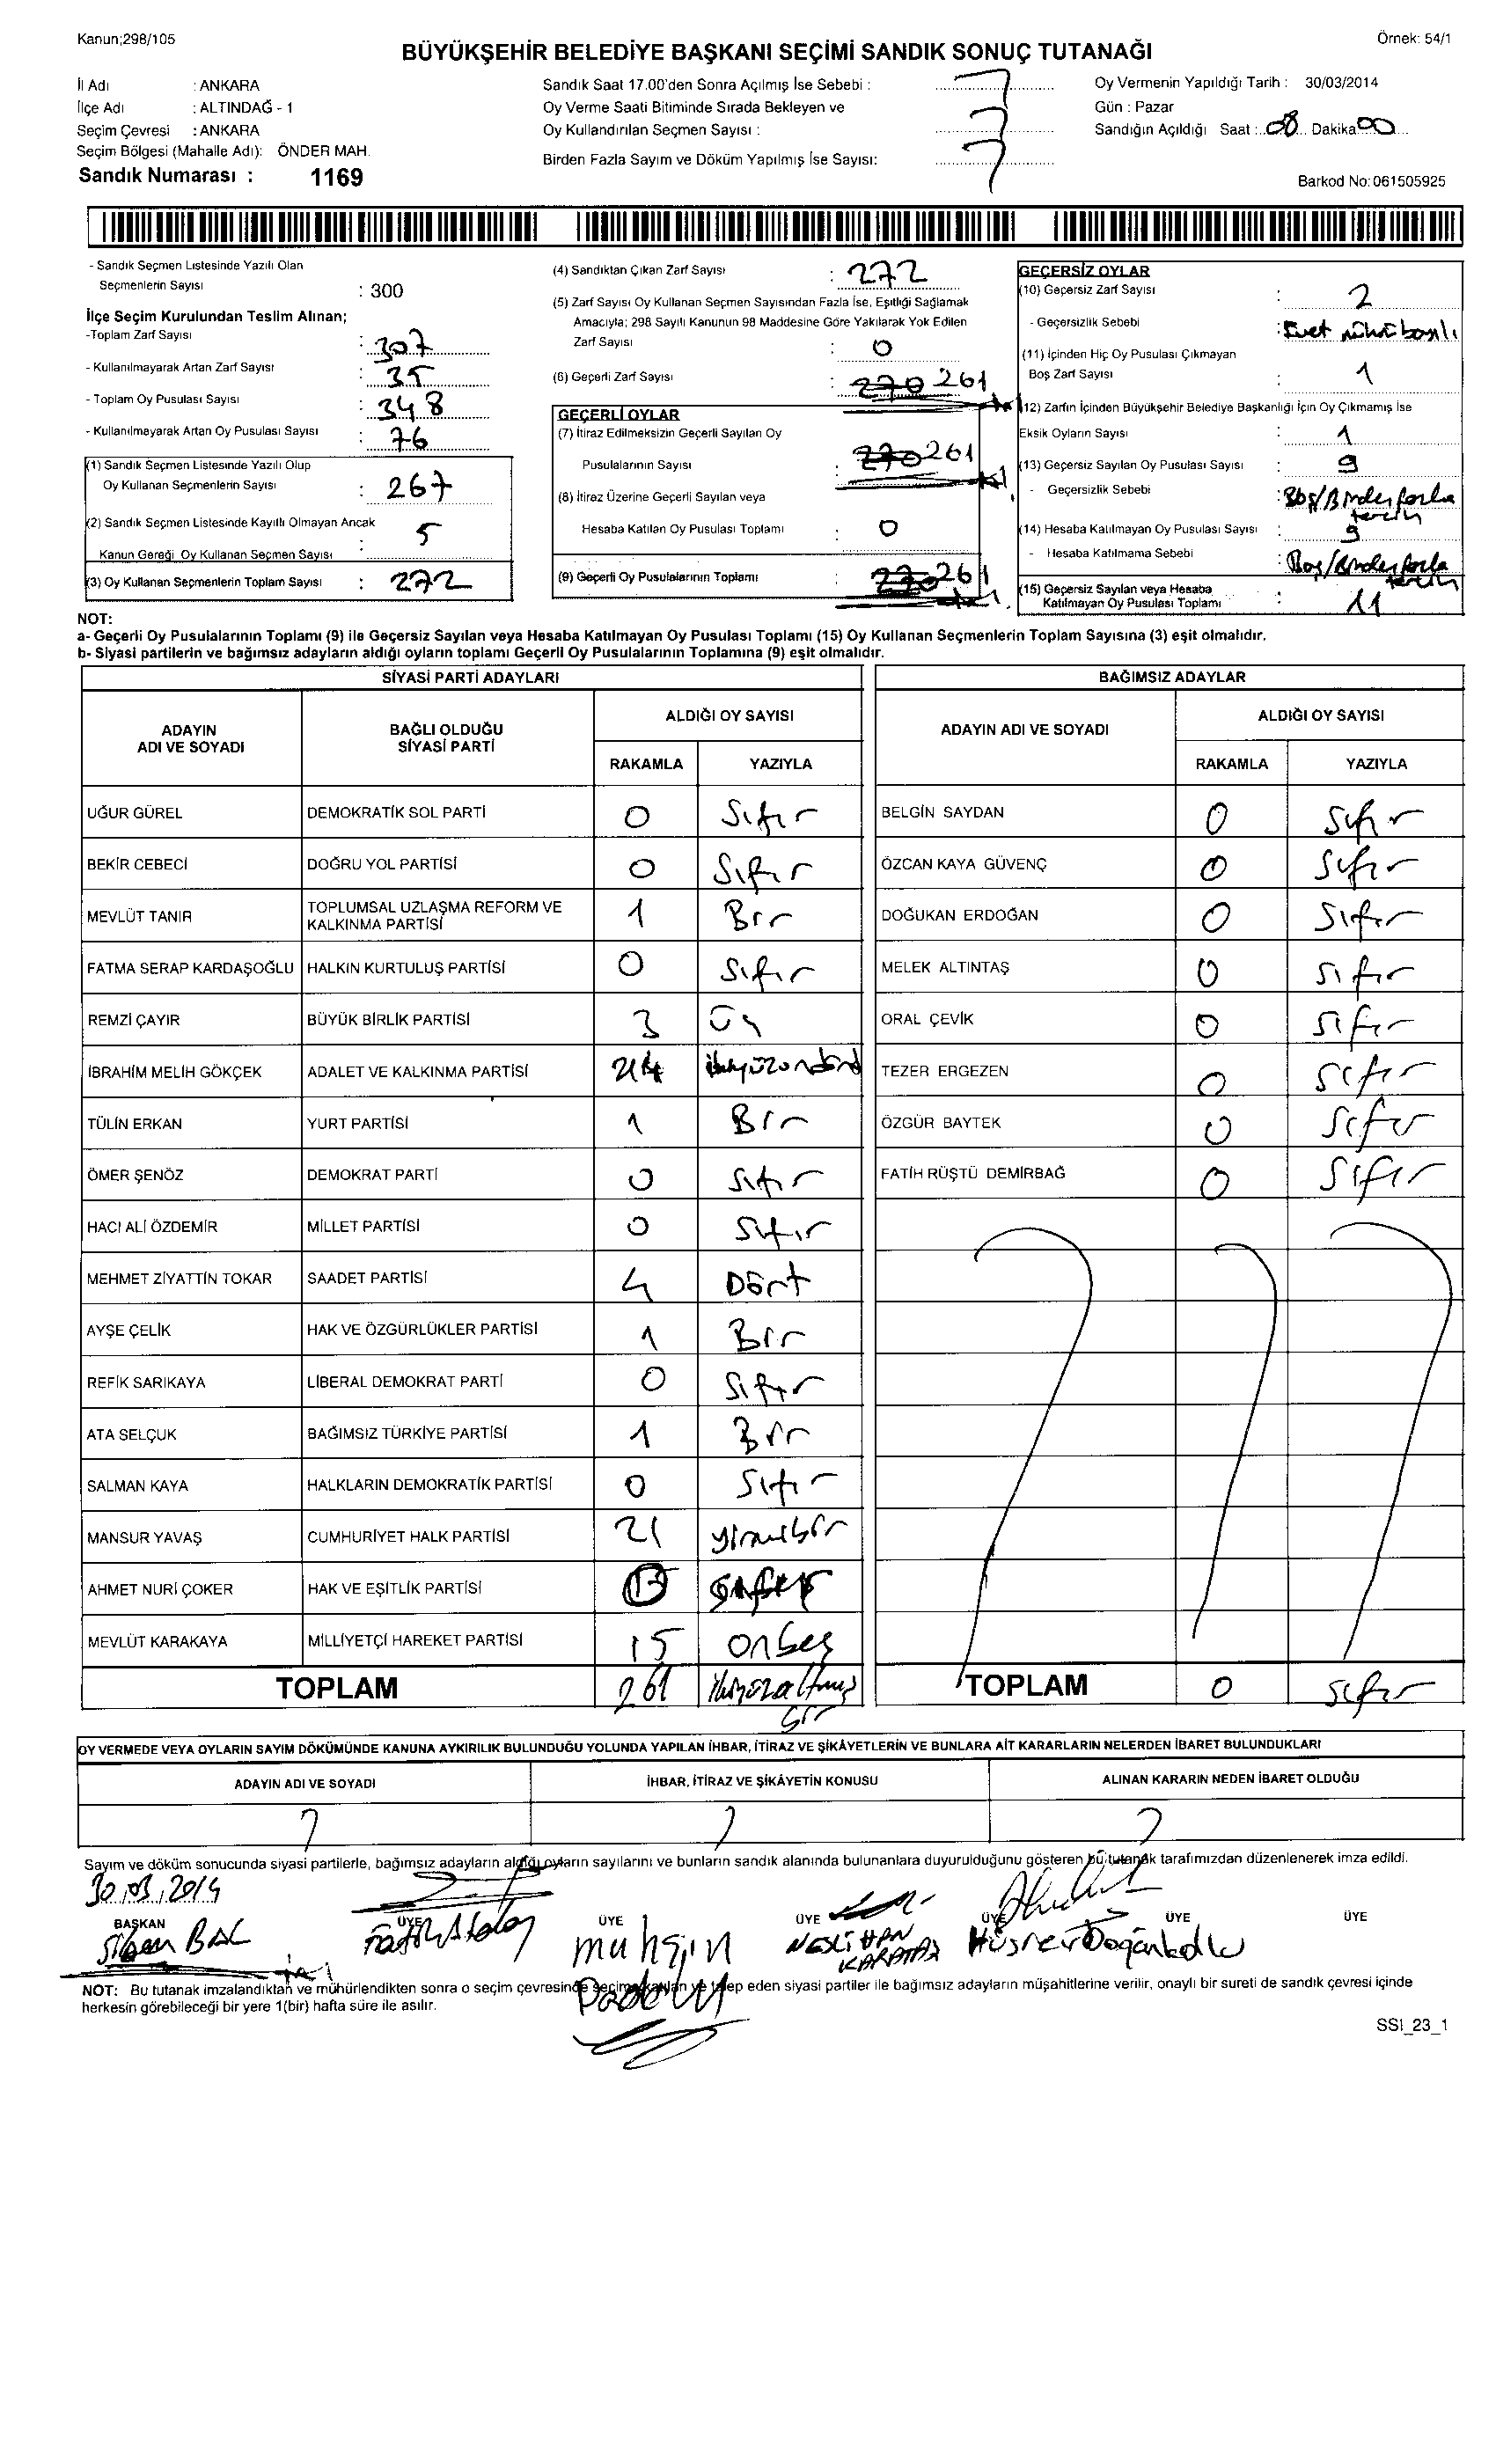 Kanun;298/105
Örnek: 54/1
BÜYÜKŞEHİR BELEDİYE BAŞKANI SEÇİMİ SANDIK SONUÇ TUTANAĞI
İl Adı : ANKARA
İlçe Adı : ALTINDAĞ - 1
Seçim Çevresi : ANKARA
Seçim Bölgesi (Mahalle Adı): ÖNDER MAH.
Sandık Numarası : 1169
Sandık Saat 17.00'den Sonra Açılmış İse Sebebi :
Oy Verme Saati Bitiminde Sırada Bekleyen ve
Oy Kullandırılan Seçmen Sayısı :
Birden Fazla Sayım ve Döküm Yapılmış İse Sayısı:
Oy Vermenin Yapıldığı Tarih : 30/03/2014
Gün : Pazar
Sandığın Açıldığı Saat : 08 Dakika 00
Barkod No: 061505925
- Sandık Seçmen Listesinde Yazılı Olan
Seçmenlerin Sayısı : 300
İlçe Seçim Kurulundan Teslim Alınan;
-Toplam Zarf Sayısı : 307
- Kullanılmayarak Artan Zarf Sayısı : 35
- Toplam Oy Pusulası Sayısı : 348
- Kullanılmayarak Artan Oy Pusulası Sayısı : 76
(1) Sandık Seçmen Listesinde Yazılı Olup
Oy Kullanan Seçmenlerin Sayısı : 267
(2) Sandık Seçmen Listesinde Kayıtlı Olmayan Ancak
Kanun Gereği Oy Kullanan Seçmen Sayısı : 5
(3) Oy Kullanan Seçmenlerin Toplam Sayısı : 272
(4) Sandıktan Çıkan Zarf Sayısı : 272
(5) Zarf Sayısı Oy Kullanan Seçmen Sayısından Fazla İse, Eşitliği Sağlamak
Amacıyla; 298 Sayılı Kanunun 98 Maddesine Göre Yakılarak Yok Edilen
Zarf Sayısı : 0
(6) Geçerli Zarf Sayısı : 270 261
GEÇERLİ OYLAR
(7) İtiraz Edilmeksizin Geçerli Sayılan Oy
Pusulalarının Sayısı : 270 261
(8) İtiraz Üzerine Geçerli Sayılan veya
Hesaba Katılan Oy Pusulası Toplamı : 0
(9) Geçerli Oy Pusulalarının Toplamı : 270 261
GEÇERSİZ OYLAR
(10) Geçersiz Zarf Sayısı : 2
- Geçersizlik Sebebi : Evet mührü basılı
(11) İçinden Hiç Oy Pusulası Çıkmayan
Boş Zarf Sayısı : 1
(12) Zarfın İçinden Büyükşehir Belediye Başkanlığı İçin Oy Çıkmamış İse
Eksik Oyların Sayısı : 1
(13) Geçersiz Sayılan Oy Pusulası Sayısı : 9
- Geçersizlik Sebebi : Boş/Birden fazla
tercih
(14) Hesaba Katılmayan Oy Pusulası Sayısı : 9
- Hesaba Katılmama Sebebi : Boş/Birden fazla
tercih
(15) Geçersiz Sayılan veya Hesaba
Katılmayan Oy Pusulası Toplamı : 11
NOT:
a- Geçerli Oy Pusulalarının Toplamı (9) ile Geçersiz Sayılan veya Hesaba Katılmayan Oy Pusulası Toplamı (15) Oy Kullanan Seçmenlerin Toplam Sayısına (3) eşit olmalıdır.
b- Siyasi partilerin ve bağımsız adayların aldığı oyların toplamı Geçerli Oy Pusulalarının Toplamına (9) eşit olmalıdır.
SİYASİ PARTİ ADAYLARI
ADAYIN
ADI VE SOYADI
BAĞLI OLDUĞU
SİYASİ PARTİ
ALDIĞI OY SAYISI
RAKAMLA YAZIYLA
UĞUR GÜREL DEMOKRATİK SOL PARTİ 0 Sıfır
BEKİR CEBECİ DOĞRU YOL PARTİSİ 0 Sıfır
MEVLÜT TANIR TOPLUMSAL UZLAŞMA REFORM VE
KALKINMA PARTİSİ 1 Bir
FATMA SERAP KARDAŞOĞLU HALKIN KURTULUŞ PARTİSİ 0 Sıfır
REMZİ ÇAYIR BÜYÜK BİRLİK PARTİSİ 3 Üç
İBRAHİM MELİH GÖKÇEK ADALET VE KALKINMA PARTİSİ 214 ikiyüzondört
TÜLİN ERKAN YURT PARTİSİ 1 Bir
ÖMER ŞENÖZ DEMOKRAT PARTİ 0 Sıfır
HACI ALİ ÖZDEMİR MİLLET PARTİSİ 0 Sıfır
MEHMET ZİYATTİN TOKAR SAADET PARTİSİ 4 Dört
AYŞE ÇELİK HAK VE ÖZGÜRLÜKLER PARTİSİ 1 Bir
REFİK SARIKAYA LİBERAL DEMOKRAT PARTİ 0 Sıfır
ATA SELÇUK BAĞIMSIZ TÜRKİYE PARTİSİ 1 Bir
SALMAN KAYA HALKLARIN DEMOKRATİK PARTİSİ 0 Sıfır
MANSUR YAVAŞ CUMHURİYET HALK PARTİSİ 21 yirmibir
AHMET NURİ ÇOKER HAK VE EŞİTLİK PARTİSİ
MEVLÜT KARAKAYA MİLLİYETÇİ HAREKET PARTİSİ 15 onbeş
TOPLAM 261 ikiyüzaltmış
bir
BAĞIMSIZ ADAYLAR
ADAYIN ADI VE SOYADI
ALDIĞI OY SAYISI
RAKAMLA YAZIYLA
BELGİN SAYDAN 0 Sıfır
ÖZCAN KAYA GÜVENÇ 0 Sıfır
DOĞUKAN ERDOĞAN 0 Sıfır
MELEK ALTINTAŞ 0 Sıfır
ORAL ÇEVİK 0 Sıfır
TEZER ERGEZEN 0 Sıfır
ÖZGÜR BAYTEK 0 Sıfır
FATİH RÜŞTÜ DEMİRBAĞ 0 Sıfır
TOPLAM 0 Sıfır
OY VERMEDE VEYA OYLARIN SAYIM DÖKÜMÜNDE KANUNA AYKIRILIK BULUNDUĞU YOLUNDA YAPILAN İHBAR, İTİRAZ VE ŞİKÂYETLERİN VE BUNLARA AİT KARARLARIN NELERDEN İBARET BULUNDUKLARI
ADAYIN ADI VE SOYADI İHBAR, İTİRAZ VE ŞİKÂYETİN KONUSU ALINAN KARARIN NEDEN İBARET OLDUĞU
Sayım ve döküm sonucunda siyasi partilerle, bağımsız adayların aldığı oyların sayılarını ve bunların sandık alanında bulunanlara duyurulduğunu gösteren bu tutanak tarafımızdan düzenlenerek imza edildi.
30.03.2014
BAŞKAN ÜYE ÜYE ÜYE ÜYE ÜYE ÜYE
BAL muhsin NESLİHAN
NOT: Bu tutanak imzalandıktan ve mühürlendikten sonra o seçim çevresinde seçime katılan ve talep eden siyasi partiler ile bağımsız adayların müşahitlerine verilir, onaylı bir sureti de sandık çevresi içinde
herkesin görebileceği bir yere 1(bir) hafta süre ile asılır.
SSI_23_1